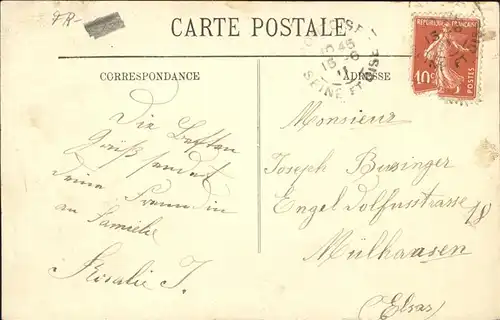 FR-
CARTE POSTALE
CORRESPONDANCE
ADRESSE
OISE
10 45
15 -6
11
SEINE ET OISE
RÉPUBLIQUE FRANÇAISE
10c
POSTES
Die besten
Grüß sendet
Deine Freundin
an Familie
Rosalie J.
Monsieur
Joseph Bussinger
Engel Dolfusstrasse 18
Mülhausen
(Elsas)